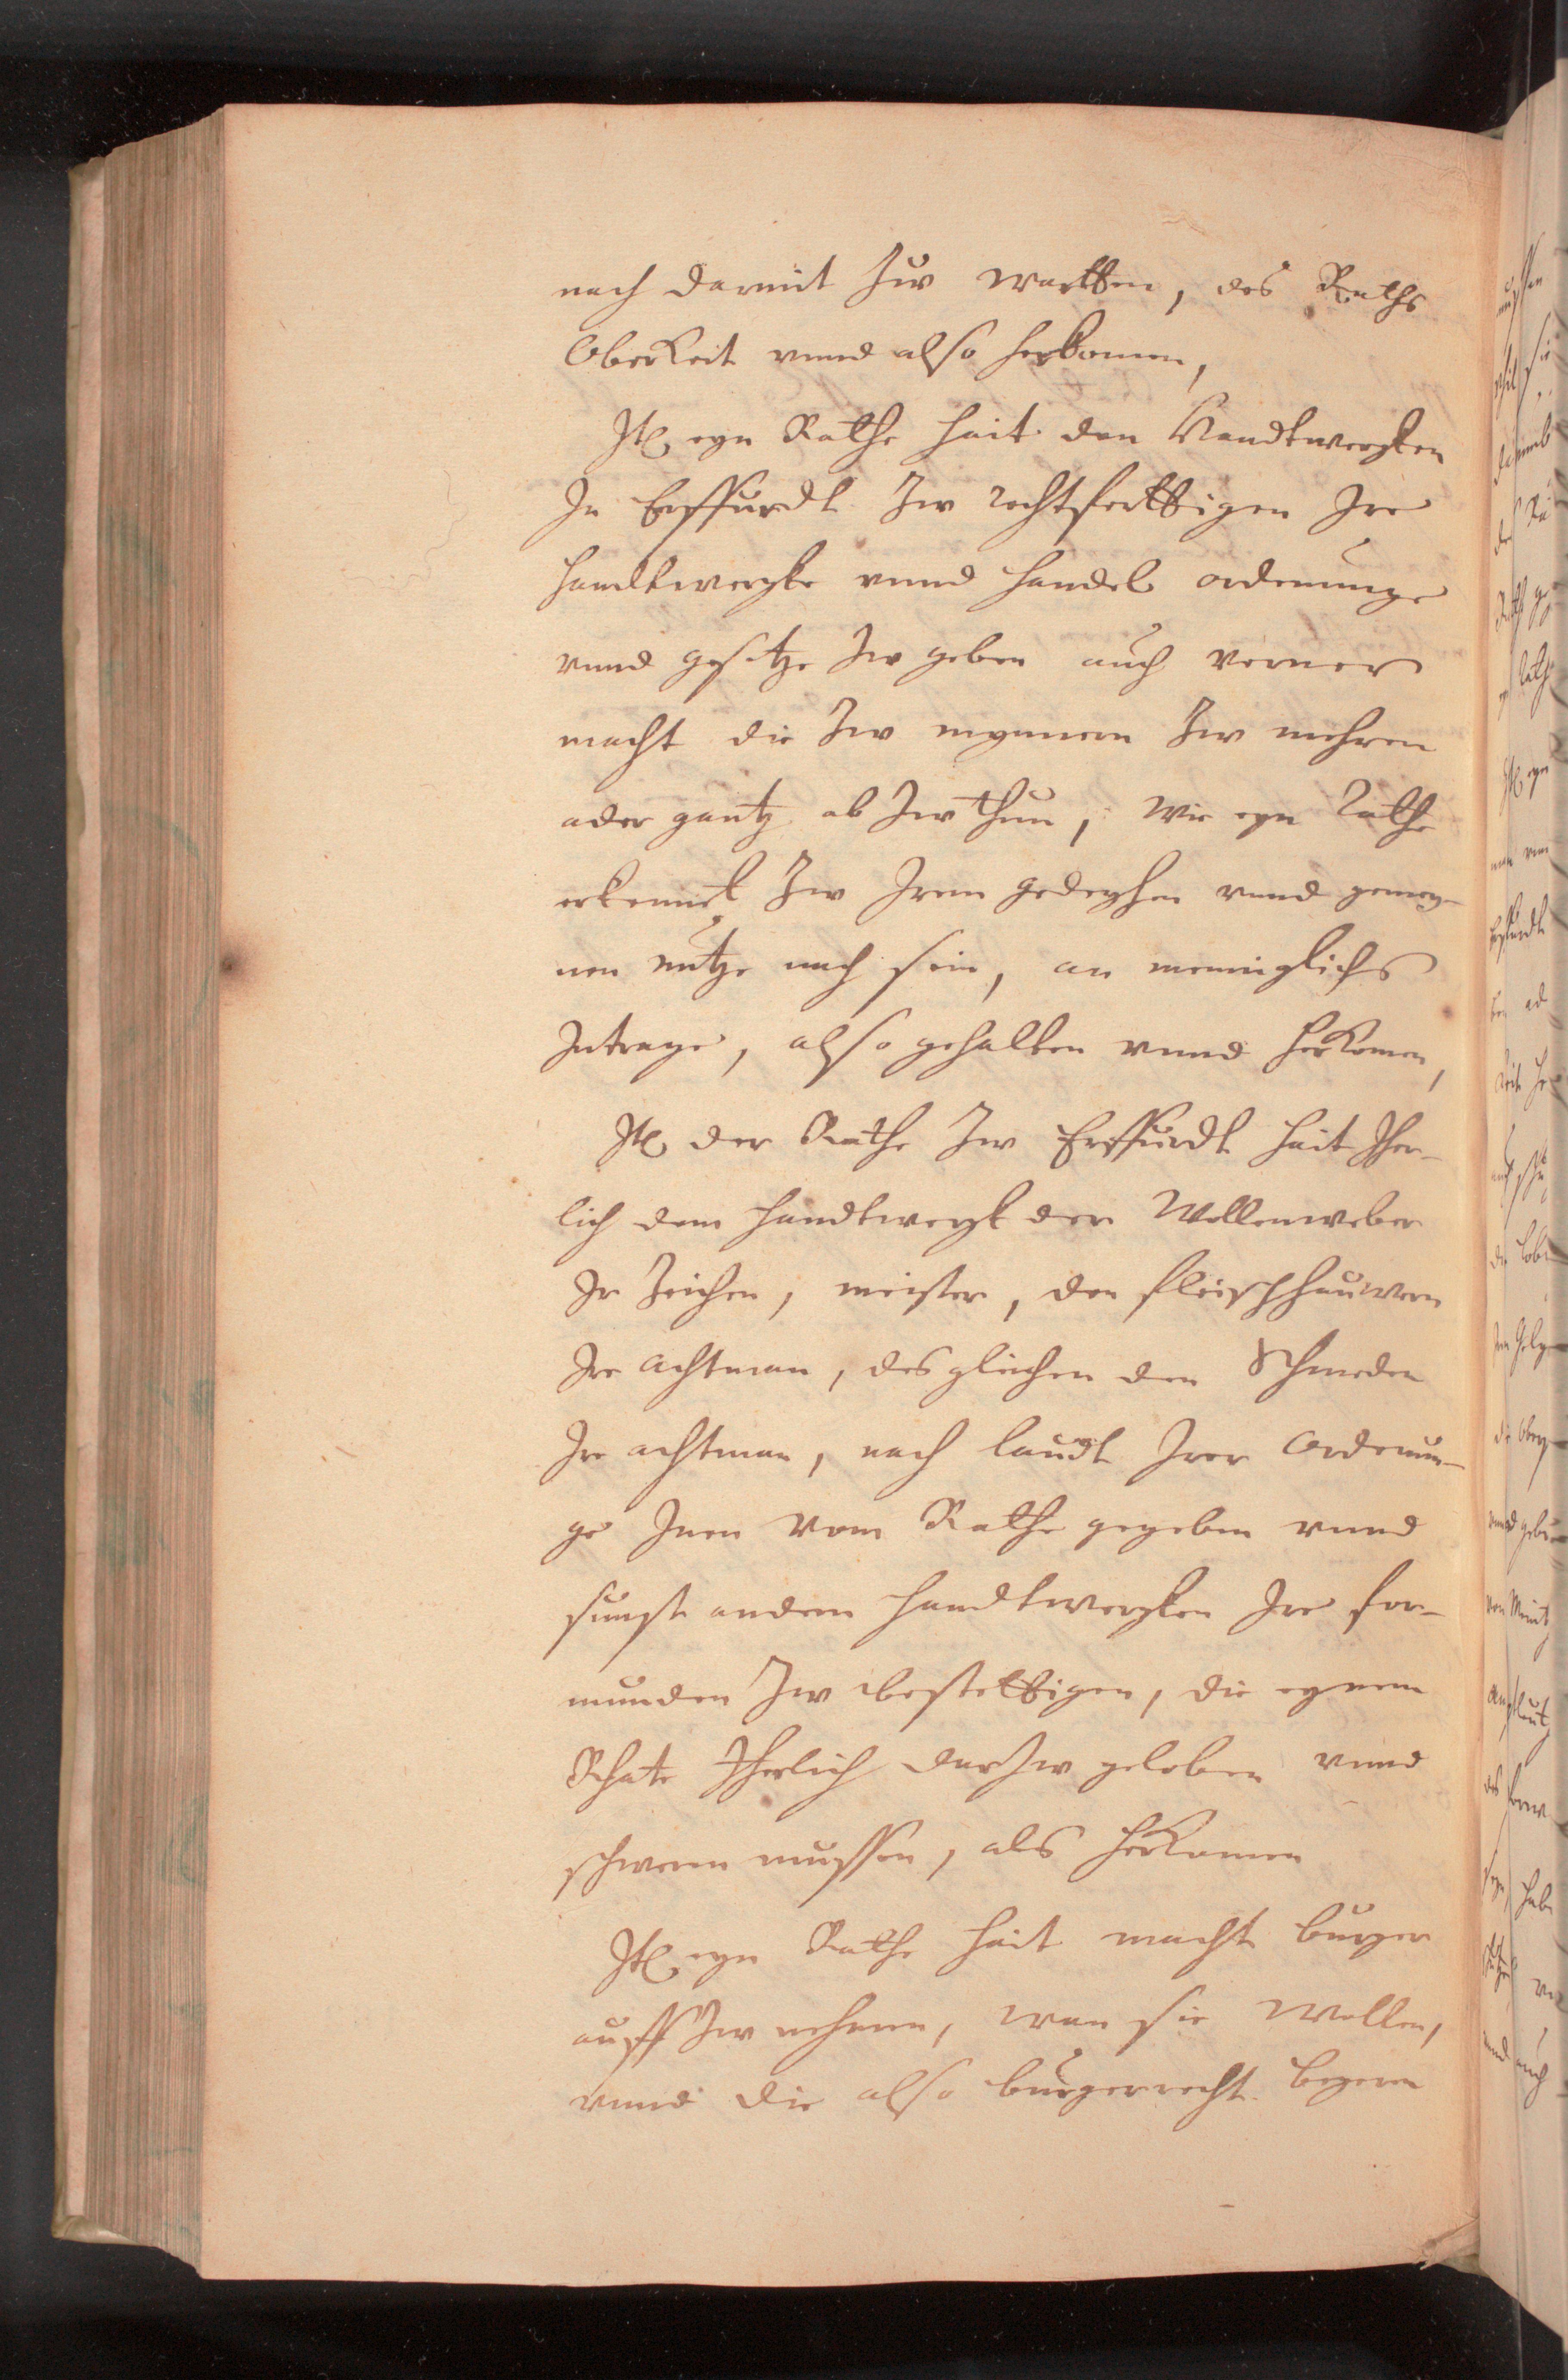 nach darmit Zw wartten, des Raths
Oberkeit vnnd also herkomen,
It[em] eyn Rathe hait den Handtwergken
In Erffurdt Zw rechtferttigen Ire
handtwergke vnnd handel ordenunge
vnnd gesetze Zw geben auch verner
macht die Zw mynnern Zw mehren
ader gantz ab Zw thun, wie eyn Rathe
erkennet Zw Irem gedeyhen vnnd gemey-
nen nutze nach sein, an menniglichs
Intrage, also gehalten vnnd herkomen,
It[em] der Rathe Zw Erffurdt hait Iher-
lich dem handtwergk der Wollenweber
Ir Zeichen, meister, den fleischhauwern
Ire achtman, desgleichen den Schmeden
Ire achtman, nach laudt Irer Ordenun-
ge Inen vom Rathe gegeben vnnd
sunst andern handtwergken Ire for-
munden Zw bestettigen, die eynem
Rhate Iherlich darZw geloben vnnd
schweren mussen, als herkomen
It[em] eyn Rathe hait macht burger
auff Zw nehmen, wan sie wollen,
vnnd die also burgerrecht begeren